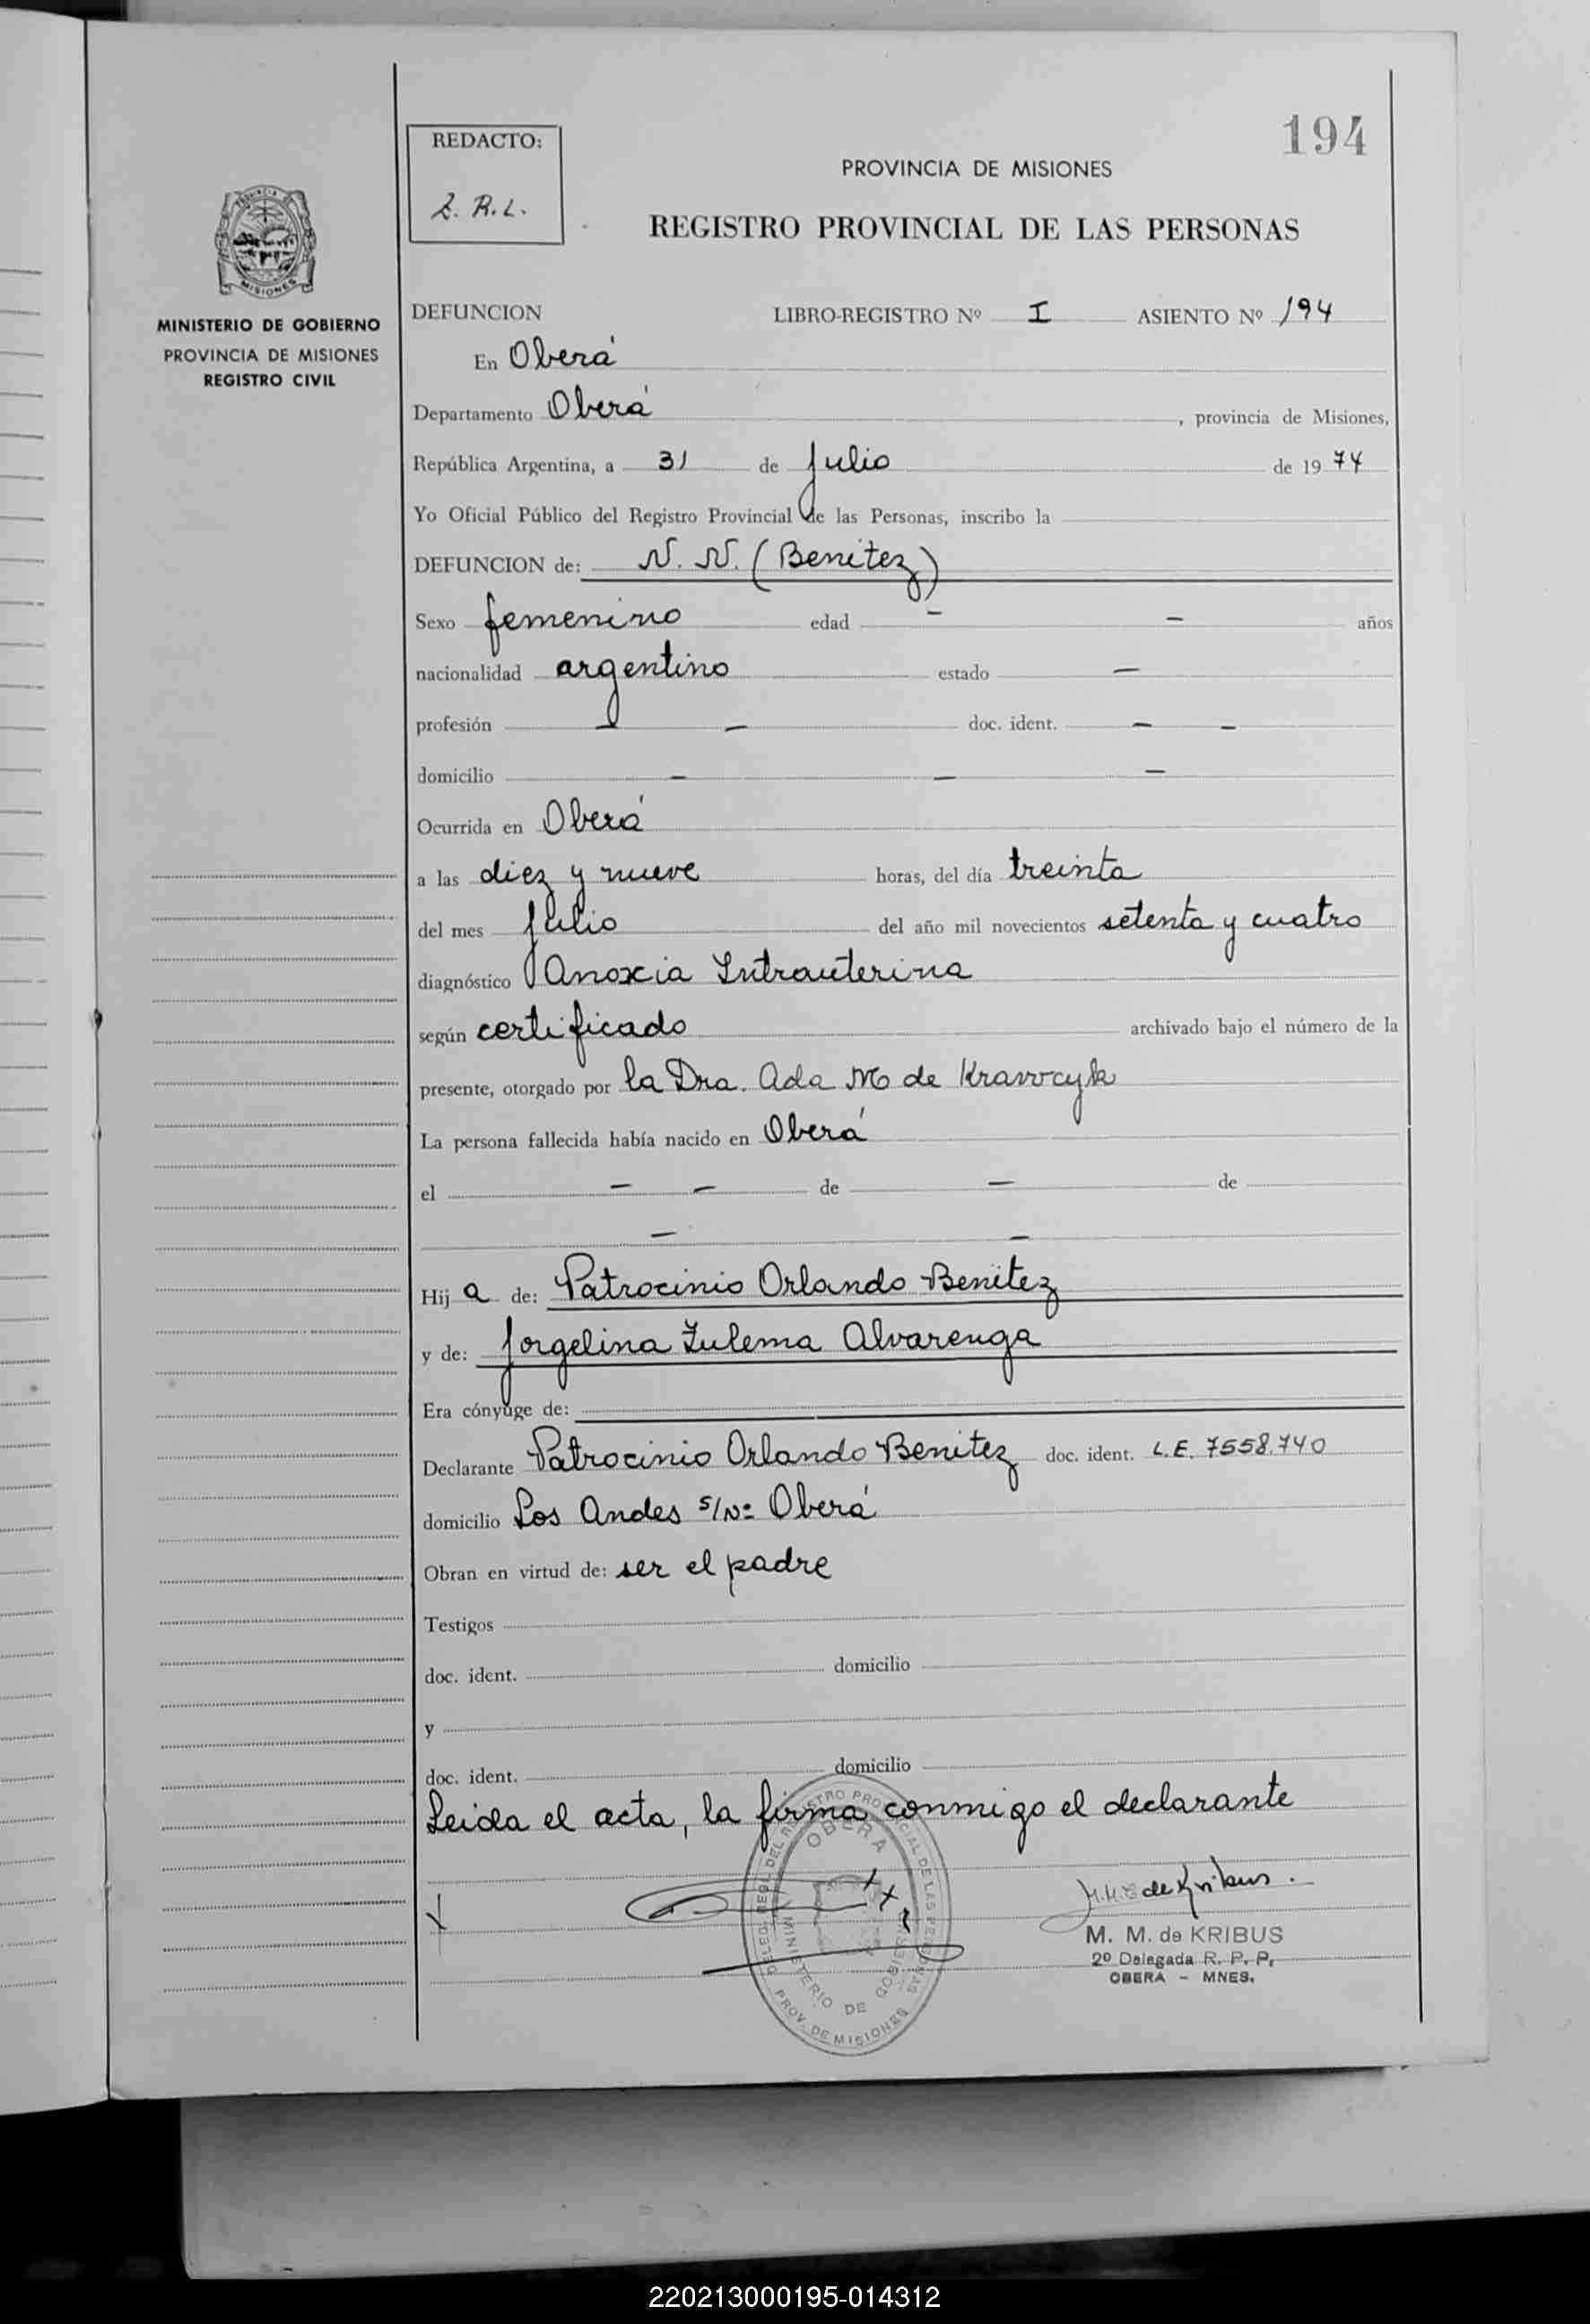 194
REDACTO:
Z. R. L.
PROVINCIA DE MISIONES
REGISTRO PROVINCIAL DE LAS PERSONAS
PROVINCIA
MISIONES
MINISTERIO DE GOBIERNO
PROVINCIA DE MISIONES
REGISTRO CIVIL
DEFUNCION LIBRO-REGISTRO Nº I ASIENTO Nº 194
En Oberá
Departamento Oberá, provincia de Misiones,
República Argentina, a 31 de Julio de 1974
Yo Oficial Público del Registro Provincial de las Personas, inscribo la
DEFUNCION de: N. N. (Benitez)
Sexo femenino edad - - años
nacionalidad argentino estado -
profesión - - doc. ident. - -
domicilio - - -
Ocurrida en Oberá
a las diez y nueve horas, del día treinta
del mes Julio del año mil novecientos setenta y cuatro
diagnóstico Anoxia Intrauterina
según certificado archivado bajo el número de la
presente, otorgado por la Dra. Ada M de
La persona fallecida había nacido en Oberá
el - - de - de
- -
Hija de: Patrocinio Orlando Benitez
y de: Jorgelina Zulema Alvarenga
Era cónyuge de:
Declarante Patrocinio Orlando Benitez doc. ident. L.E. 7558.740
domicilio Los Andes s/Nº Oberá
Obran en virtud de: ser el padre
Testigos
doc. ident. domicilio
y
doc. ident. domicilio
Leida el acta, la firma conmigo el declarante
DELEG. REGL. DEL REGISTRO PROVINCIAL DE LAS PERSONAS
OBERA
MINISTERIO DE GOBIERNO
PROV. DE MISIONES
M. M. de Kribus.
M. M. de KRIBUS
2º Delegada R. P. P.
OBERA - MNES.
220213000195-014312